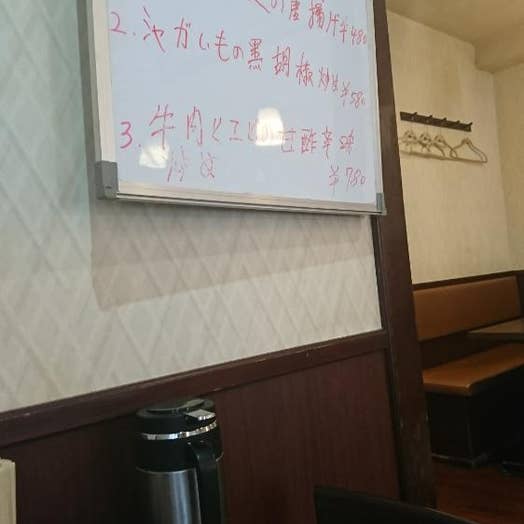 の唐揚げ ¥480
2. ジャガいもの黒胡椒炒め ¥580
3. 牛肉とエビの甘酢辛味
¥780